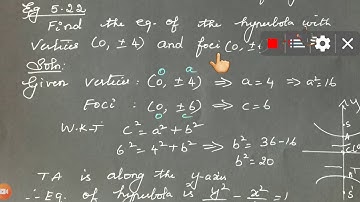 Eg 5.22
Find the eq. of the hyperbola with
vertices (0, ±4) and foci (0, ±
Soln:
Given vertices : (0, ±4) ⇒ a = 4 ⇒ a² = 16
Foci : (0, ±6) ⇒ c = 6
W.K.T c² = a² + b²
6² = 4² + b² ⇒ b² = 36 - 16
b² = 20
TA is along the y-axis
∴ Eq. of hyperbola is y²/ - x²/ = 1